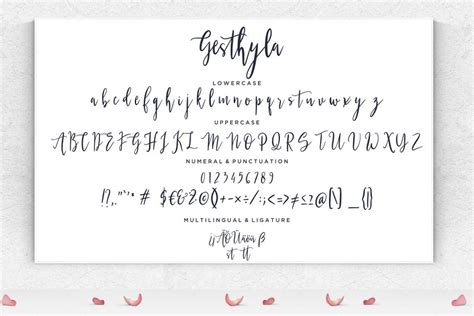 Gesthyla
LOWERCASE
abcdefghijklmnopqrstuvwxyz
UPPERCASE
ABCDEFGHIJKLMNOPQRSTUVWXYZ
NUMERAL & PUNCTUATION
0123456789
MULTILINGUAL & LIGATURE
st tt